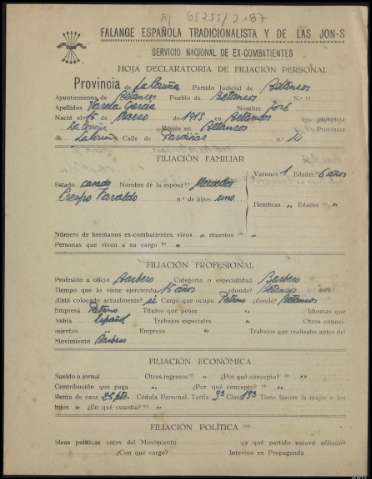 65255/2187
FALANGE ESPAÑOLA TRADICIONALISTA Y DE LAS JON-S
SERVICIO NACIONAL DE EX-COMBATIENTES
HOJA DECLARATORIA DE FILIACIÓN PERSONAL
Provincia de La Coruña Partido Judicial de Betanzos
Ayuntamiento de Betanzos Pueblo de Betanzos N.º
Apellidos Varela García Nombre José
Nació el 15 de Marzo de 1913 en Betanzos Provincia
La Coruña Reside en Betanzos Provincia
La Coruña Calle de N.º
FILIACIÓN FAMILIAR
Varones 1 Edades 6 años
Estado casado Nombre de la esposa Mercedes
Crespo n.º de hijos uno
Hembras » Edades »
Número de hermanos ex-combatientes vivos » muertos »
Personas que viven a su cargo »
FILIACIÓN PROFESIONAL
Profesión u oficio Barbero Categoría o especialidad Barbero
Tiempo que lo viene ejerciendo 15 años ¿dónde? Betanzos
¿Está colocado actualmente? si Cargo que ocupa Patrono ¿dónde? Betanzos
Empresa Patrono Títulos que posee » Idiomas que
habla Español Trabajos especiales » Otros conoci-
mientos Empresa » Trabajos que realizaba antes del
Movimiento Barbero
FILIACIÓN ECONÓMICA
Sueldo o jornal Otros ingresos » ¿Por qué concepto? »
Contribución que paga » ¿Por qué concepto? »
Renta de casa 25 pts. Cédula Personal Tarifa 3ª Clase 13ª Tiene bienes la mujer o los
hijos » ¿En qué cuantía? »
FILIACIÓN POLÍTICA
Ideas políticas antes del Movimiento ¿a qué partido estuvo afiliado?
¿Con qué cargo? Intervino en Propaganda